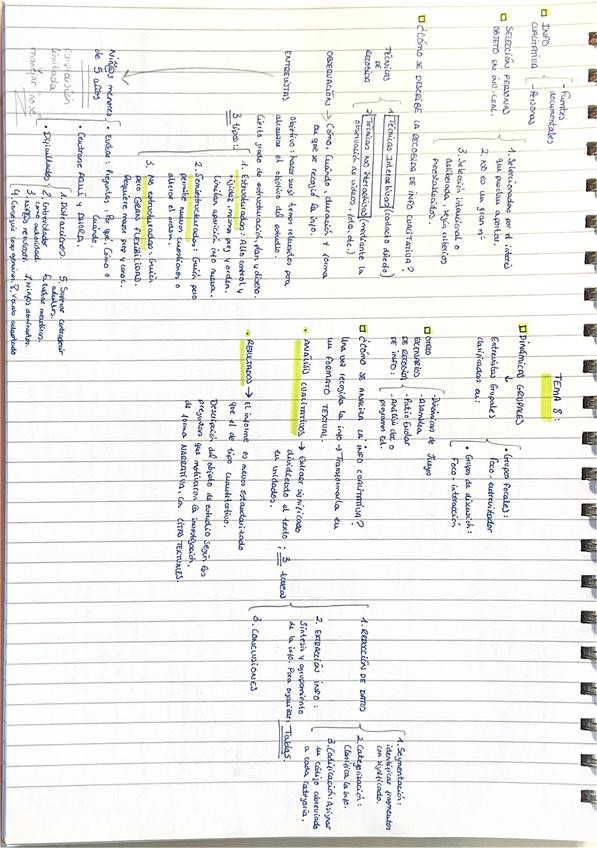 TEMA 8:
INFO
CUALITATIVA
- Fuentes
documentales
- Personas
SELECCIÓN PERSONAS
OBJETO EN INV. CUAL.
1. Seleccionados por el interés
que puedan aportar.
2. NO es un gran nº
3. Selección intencional o
deliberada, según criterios
preestablecidos.
¿CÓMO SE DESCRIBE LA RECOGIDA DE INFO CUALITATIVA?
TÉCNICAS
DE
RECOGIDA
1. Técnicas Interactivas (contacto directo)
2. Técnicas NO interactivas (mediante la
observación de vídeos, foto, etc.)
OBSERVACIÓN → Cómo, Cuándo, duración y forma
en que se recogió la info.
ENTREVISTAS
Objetivo: hacer surgir temas relevantes para
alcanzar el objetivo del estudio.
Cierto grado de estructuración, plan y diseño.
3 tipos:
1. Estructuradas: Alto control y
rigidez, misma preg y orden.
Limitan aparición info nueva.
2. Semiestructuradas: Guión pero
permite nuevas cuestiones o
alterar el orden.
3. No estructuradas: Guión
pero GRAN FLEXIBILIDAD.
Requiere mayor prep y conc.
Niños menores
de 5 años
comprensión
limitada
• Evitar: Preguntas, Por qué, Cómo o
Cuándo.
• Centrarse AQUÍ y AHORA.
• Dificultades
1. DISTRACCIONES.
2. Entrevistador
como autoridad
5. Suponer contradecir
adultos.
7. Niños dominantes.
DINÁMICAS GRUPALES
Entrevistas Grupales
clasificadas en:
• Grupos Focales:
Foco - entrevistador
• Grupos de discusión:
Foco - interacción
OTROS
ESCENARIOS
DE RECOGIDA
DE INFO:
- Dinámicas de Juego
- Asamblea
- Patio Escolar
- Análisis doc o
programa tel.
¿CÓMO SE ANALIZA LA INFO CUALITATIVA?
Una vez recogida la info → Transformarla en
un FORMATO TEXTUAL.
• ANÁLISIS CUALITATIVOS → Extraer significado
dividiendo el texto
en unidades.
; 3 tareas
1. REDUCCIÓN DE DATOS
1. Segmentación:
identificar fragmentos
con significado.
2. Categorización:
Clasifica la info.
3. Codificación: Asignar
un código abreviado
a cada categoría.
2. EXTRACCIÓN INFO:
Síntesis y agrupamiento
de la info. Para organizar: Tablas.
3. CONCLUSIONES
• RESULTADOS → El informe es menos estandarizado
que el de tipo cuantitativo.
Descripción del objeto de estudio según las
preguntas que motivaron la investigación,
de forma NARRATIVA, con CITAS TEXTUALES.